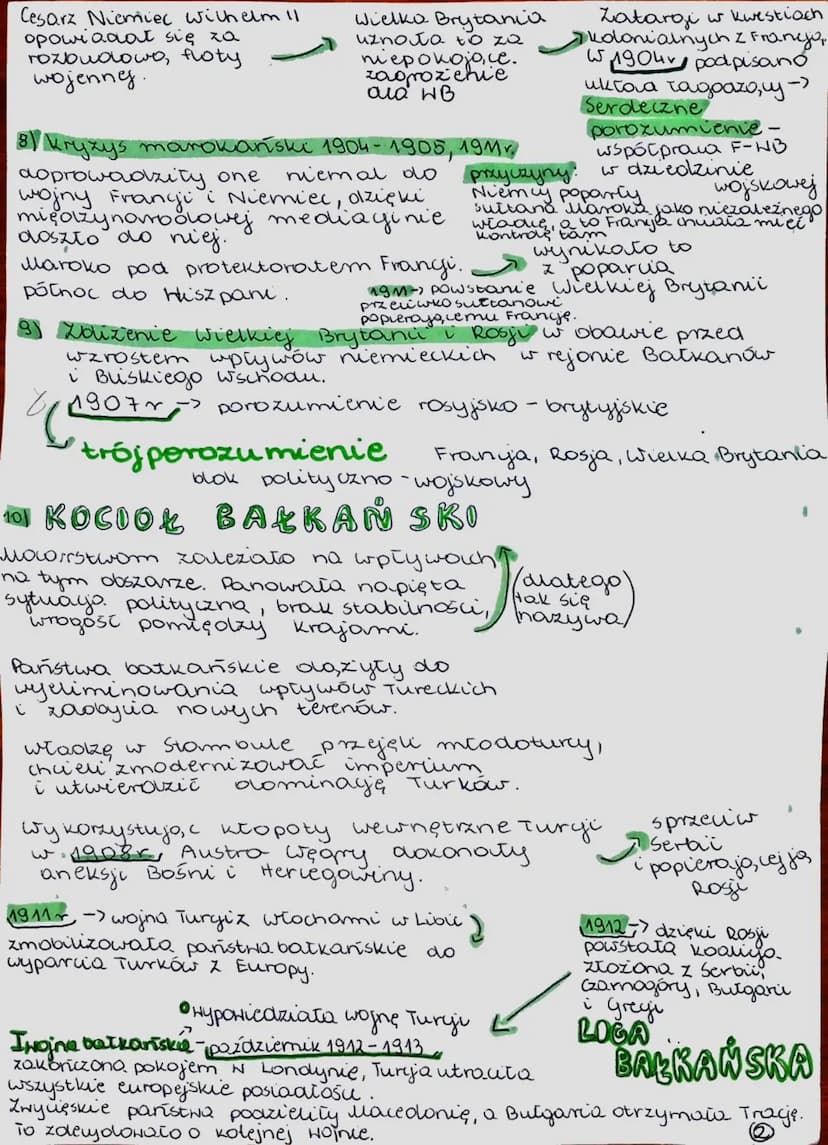 Cesarz Niemiec Wilhelm II
opowiadał się za
rozbudową floty
wojennej.
Wielka Brytania
uznała to za
niepokojące
zagrożenie
dla WB
Zatargi w kwestiach
kolonialnych z Francją,
w 1904r podpisano
układ łagodzący ->
Serdeczne
porozumienie -
współpraca F-WB
w dziedzinie
wojskowej
8) Kryzys marokański 1904-1905, 1911r.
doprowadziły one niemal do
wojny Francji i Niemiec, dzięki
międzynarodowej mediacji nie
doszło do niej.
Maroko pod protektoratem Francji.
północ do Hiszpani.
przyczyny:
Niemcy poparły
sułtana Maroka jako niezależnego
władcę, a to Francja chciała mieć
kontrolę tam
wynikało to
z poparcia
Wielkiej Brytanii
1911-> powstanie
przeciwko sułtanowi
popierającemu Francję.
9) Zbliżenie Wielkiej Brytanii i Rosji w obawie przed
wzrostem wpływów niemieckich w rejonie Bałkanów
i Bliskiego Wschodu.
1907r -> porozumienie rosyjsko-brytyjskie
trójporozumienie Francja, Rosja, Wielka Brytania
blok polityczno-wojskowy
10) KOCIOŁ BAŁKAŃSKI
Mocarstwom zależało na wpływach
na tym obszarze. Panowała napięta
sytuacja polityczna, brak stabilności,
wrogość pomiędzy krajami.
(dlatego
tak się
nazywa)
Państwa bałkańskie dążyły do
wyeliminowania wpływów Tureckich
i zdobycia nowych terenów.
Władzę w Stambule przejęli młodoturcy,
chcieli zmodernizować imperium
i utwierdzić dominację Turków.
Wykorzystując kłopoty wewnętrzne Turcji
w 1908r. Austro Węgry dokonały
aneksji Bośni i Hercegowiny.
sprzeciw
Serbii
i popierającej ją
Rosji
1911r -> wojna Turcji z Włochami w Libii
zmobilizowała państwa bałkańskie do
wyparcia Turków z Europy.
1912-> dzięki Rosji
powstała koalicja
złożona z Serbii,
Czarnogóry, Bułgarii
i Grecji
LIGA
BAŁKAŃSKA
wypowiedziała wojnę Turcji
I wojna bałkańska - październik 1912-1913
zakończona pokojem w Londynie, Turcja utraciła
wszystkie europejskie posiadłości.
Zwycięskie państwa podzieliły Macedonię, a Bułgaria otrzymała Trację.
To zdecydowało o kolejnej wojnie.
2